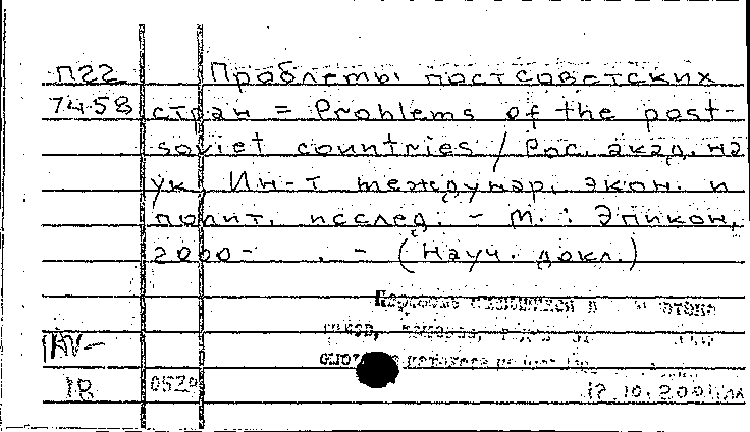 П22 Проблемы постсоветских
7458 стран = Problems of the post-
soviet countries / Рос. акад. на
ук, Ин-т междунар. экон. и
полит. исслед. - М. : Эпикон,
2000- . - (Науч. докл.)
IAV-
18 0529 12.10.2001